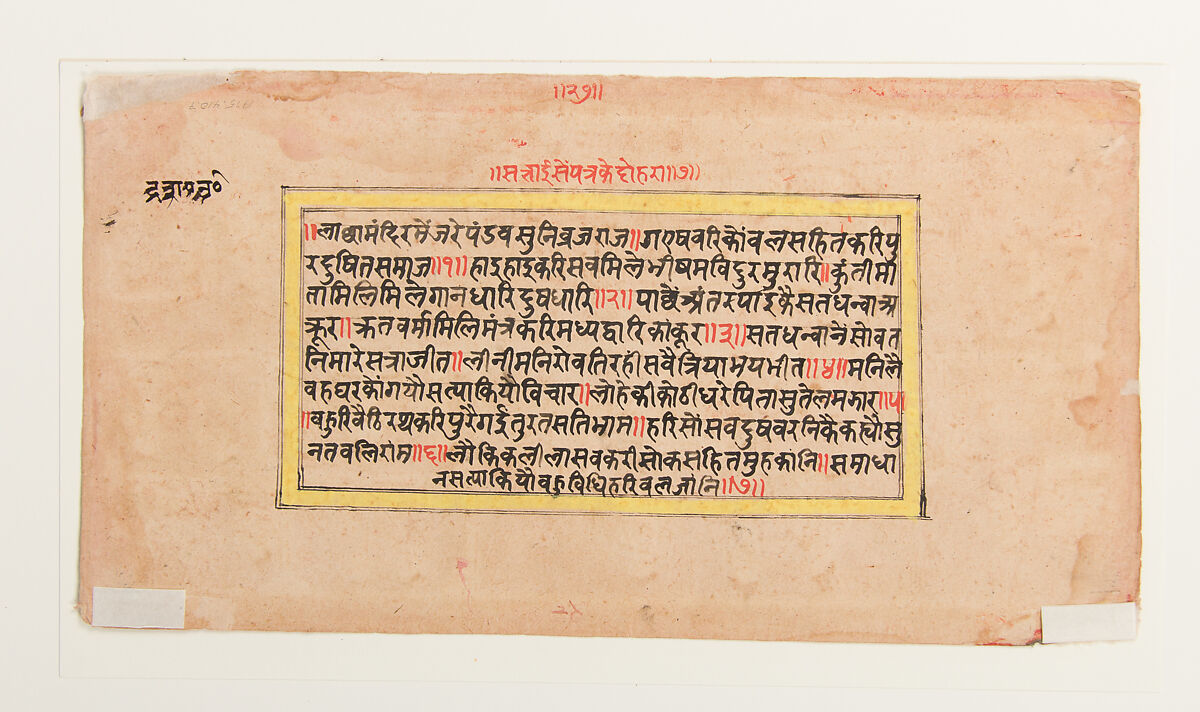 ॥२७॥
॥सत्ताईसेंपत्रकेदोहरा॥७॥
॥लाषामंदिरमेंजरेपंडवसुनिव्रजराज॥गएषवरिकोंवलसहितकरिपु
रदुषितसमाज॥१॥हाइहाइकरिसवमिलेभीषमविदुरमुरारि॥कुंतीमा
तामिलिमिलेगानधारिदुषधारि॥२॥पाछैंअंतरपाइकैसतधन्वाअ
क्रूर॥क्रतवर्मामिलिमंत्रकरिमध्यद्वारिकाकूर॥३॥सतधन्वानेंसोवत
निमारेसत्राजीत॥लीनीमनिरोवतिरहीसवैत्रियाभयभीत॥४॥मनिलै
वहघरकोंगयौसत्याकियौविचार॥लोहेकीकोठीधरेपितासुतेलमझार॥५
॥वहुरिवैठिरथकरिपुरैगईतुरतसतिभाम॥हरिसोंसवदुषवरनिकैकह्यौसु
नतवलिराम॥६॥लौकिकलीलासवकरीसोकसहितमुहकांनि॥समाधा
नसत्याकियौवहुविधिहरिवलजांनि॥७॥